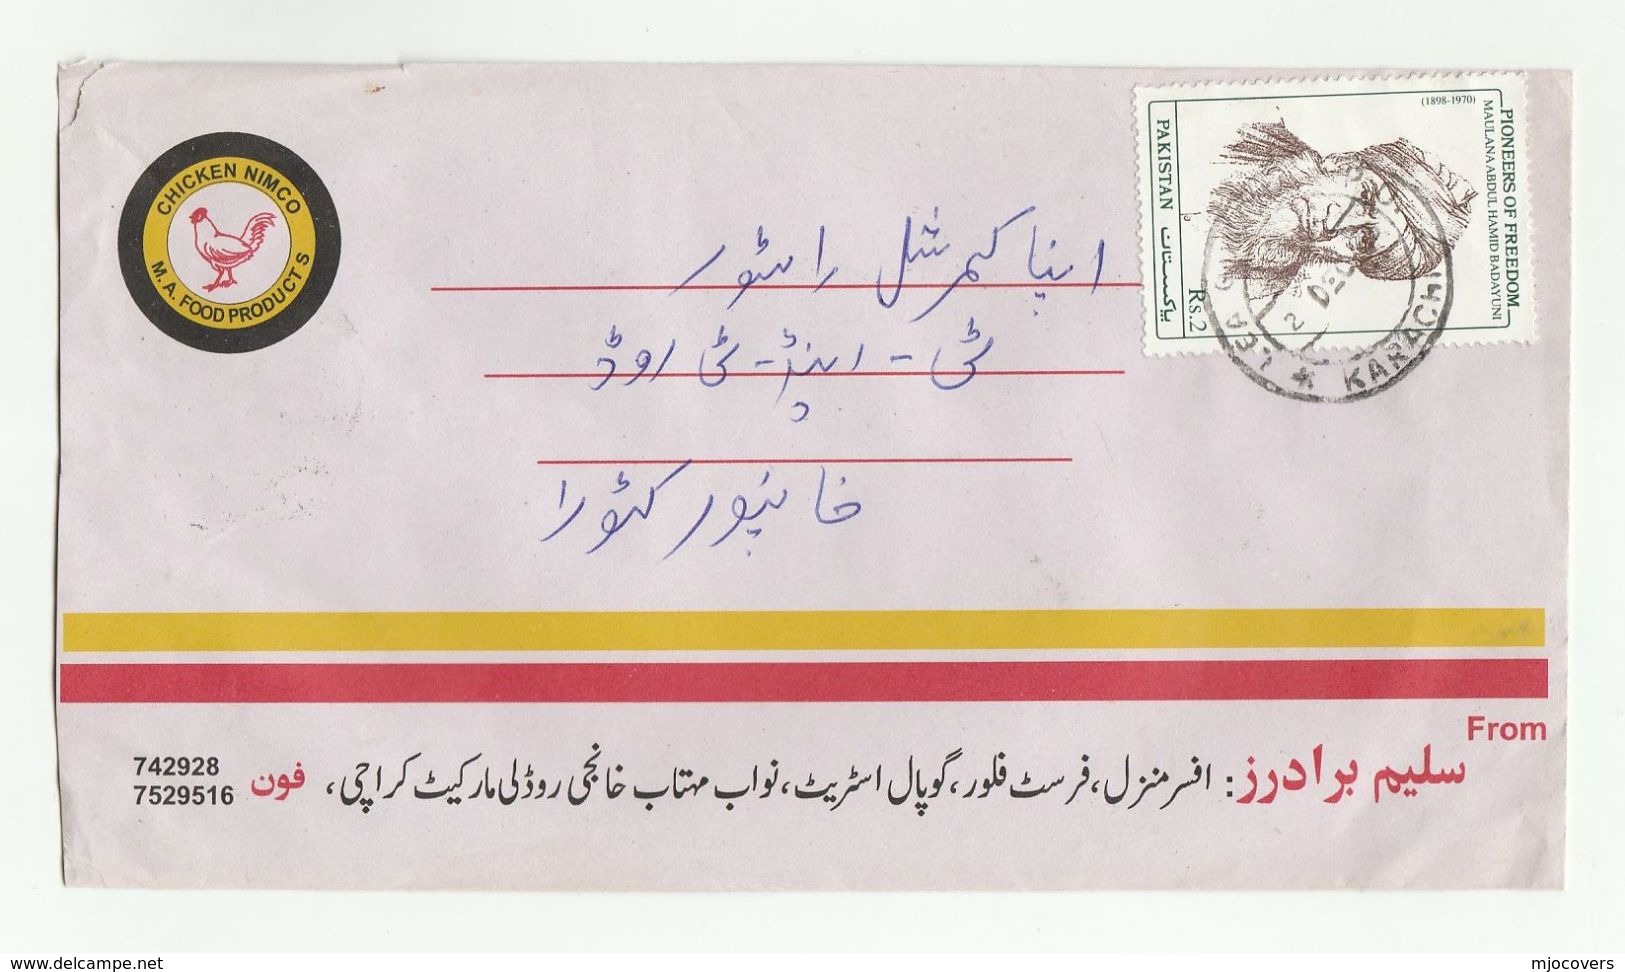 CHICKEN NIMCO
M. A. FOOD PRODUCTS
PIONEERS OF FREEDOM
MAULANA ABDUL HAMID BADAYUNI
(1898-1970)
PAKISTAN پاکستان Rs.2
KARACHI
2 DEC
اپنا کمرشل راسٹور
ٹی - اینڈ - ٹی روڈ
خانپور کٹورا
From
سلیم برادرز: افسر منزل، فرسٹ فلور، گوپال اسٹریٹ، نواب مہتاب خانجی روڈ لی مارکیٹ کراچی، فون
742928
7529516
www.delcampe.net
mjocovers